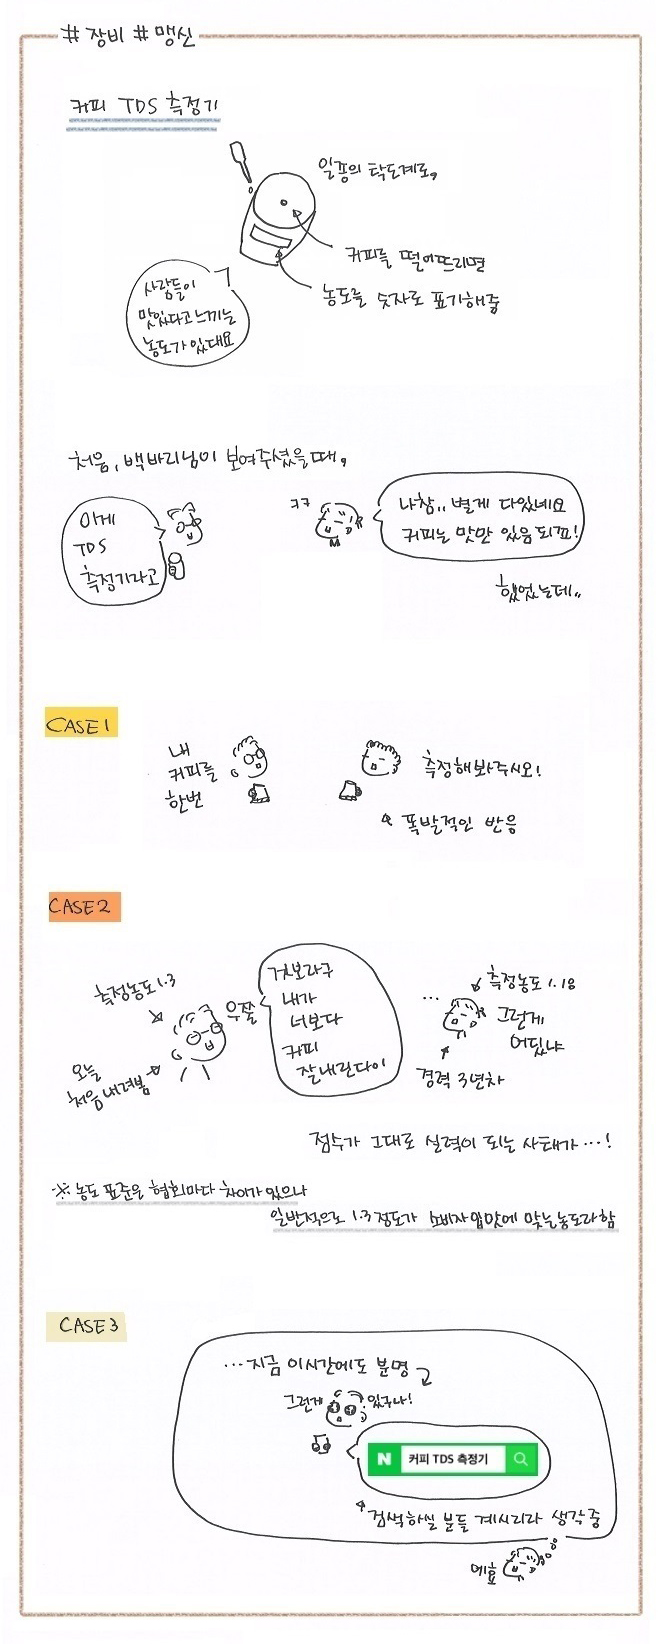 # 장비 # 맹신
커피 TDS 측정기
일종의 탁도계로,
커피를 떨어뜨리면
농도를 숫자로 표기해줌
사람들이
맛있다고 느끼는
농도가 있대요
처음, 백바리님이 보여주셨을 때,
이게
TDS
측정기라고
ㅋㅋ
나참.. 별게 다있네요
커피는 맛만 있음 되죠!
했었는데..
CASE 1
내
커피를
한번
측정해봐주시오!
폭발적인 반응
CASE 2
측정농도 1.3
오늘
처음 내려봄
우쭐
거보라구
내가
너보다
커피
잘내린다이
...
측정농도 1.18
그런게
어딨냐
경력 3년차
점수가 그대로 실력이 되는 사태가 ...!
※ 농도 표준은 협회마다 차이가 있으나
일반적으로 1.3 정도가 소비자 입맛에 맞는 농도라 함
CASE 3
... 지금 이시간에도 분명
그런게 있구나!
N 커피 TDS 측정기
검색하실 분들 계시리라 생각 중
에효